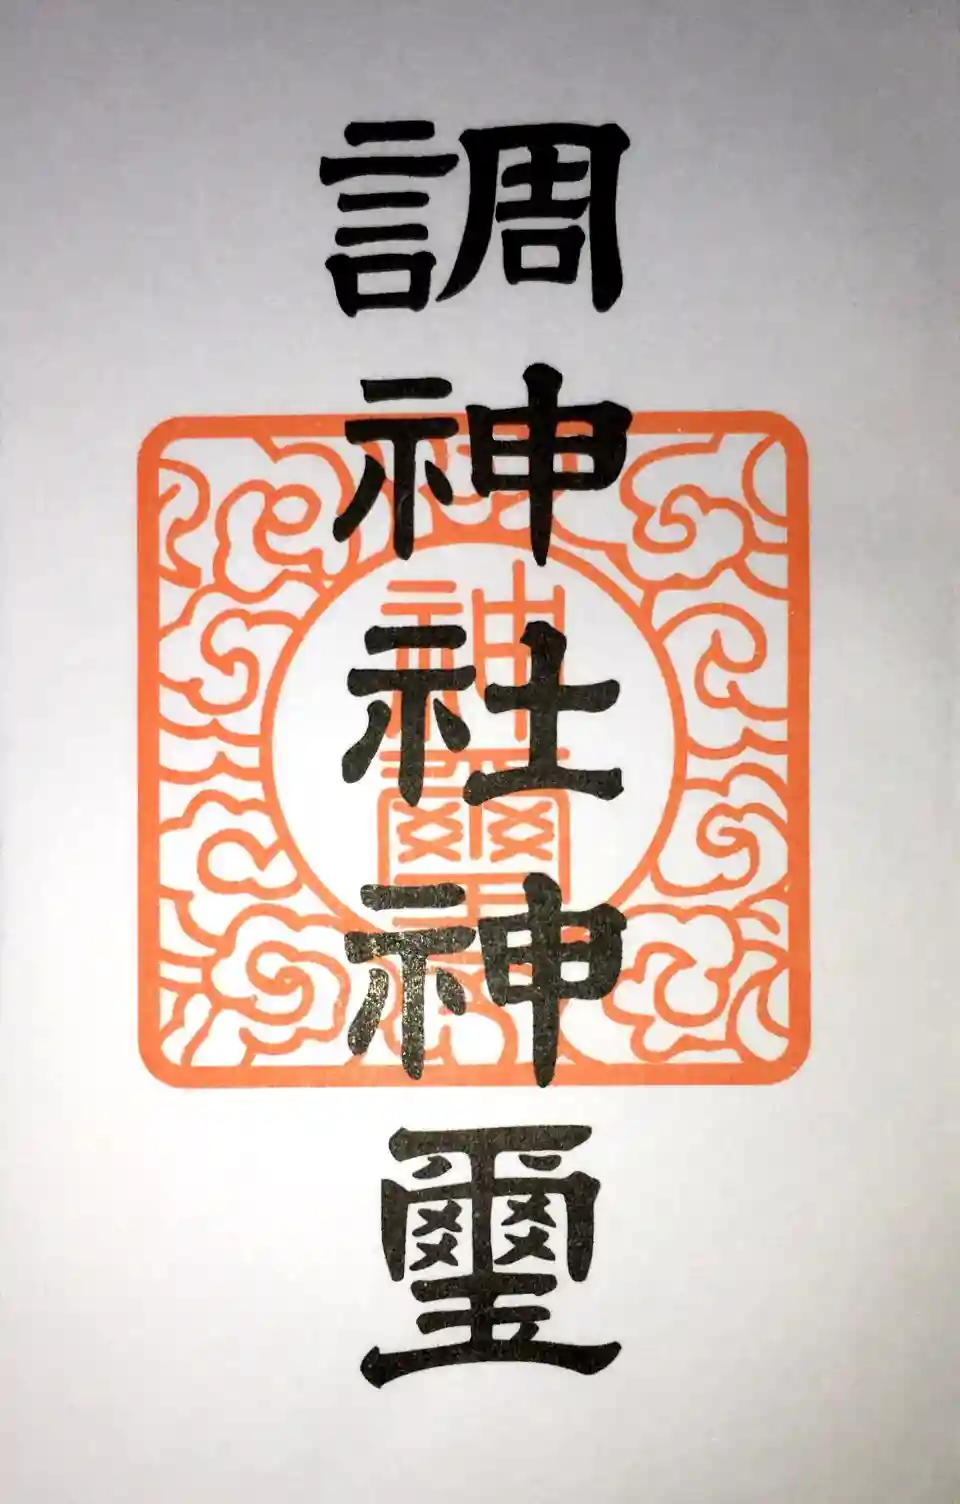 調神社神璽
神璽